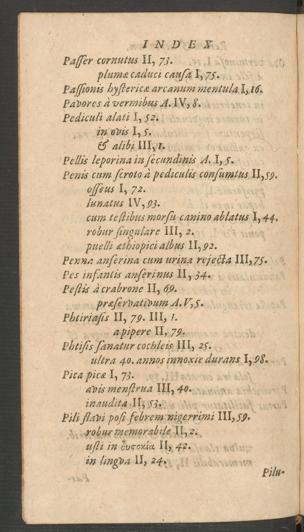 INDEX
Passer cornutus II, 73.
plumæ caduci causa I, 75.
Passionis hystericæ arcanum mentula I, 16.
Pavores à vermibus A. IV, 8.
Pediculi alati I, 52.
in ovis I, 5.
& alibi III, 1.
Pellis leporina in secundinis A. I, 5.
Penis cum scroto à pediculis consumtus II, 59.
osseus I, 72.
lunatus IV, 93.
cum testibus morsu canino ablatus I, 44.
robur singulare III, 2.
puelli æthiopici albus II, 92.
Penna anserina cum urina rejecta III, 75.
Pes infantis anserinus II, 34.
Pestis à crabrone II, 69.
præservativum A. V, 5.
Phtiriasis II, 79. III, 1.
a pipere II, 79.
Phtisis sanatur cochleis III, 25.
ultra 40. annos innoxie durans I, 98.
Pica picæ I, 73.
avis menstrua III, 40.
inaudita II, 53.
Pili flavi post febrem nigerrimi III, 59.
robur memorabile II, 2.
usti in δυσοκία II, 42.
in lingva II, 24.
Pilu-